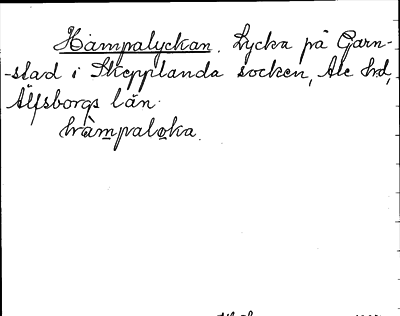 Hampalyckan. Lycka på Garn-
-stad i Skepplanda socken, Ale hd,
Älfsborgs län.
hàmpaloka.